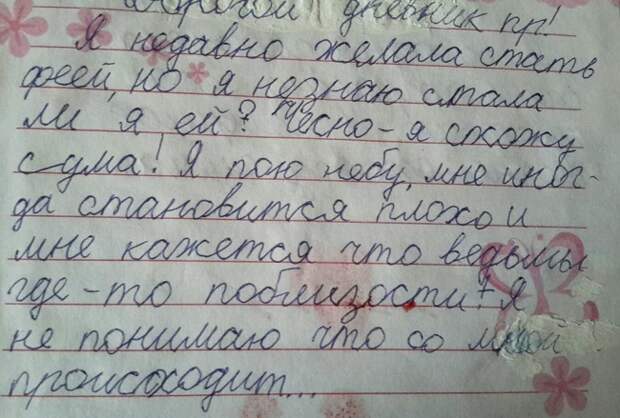 Дорогой дневник пр!
Я недавно желала стать
феей, но я незнаю стала
ли я ей? Чесно-я схожу
с ума! Я пою небу, мне иног-
да становится плохо и
мне кажется что ведьмы
где-то поблизости! Я
не понимаю что со мной
происсходит...